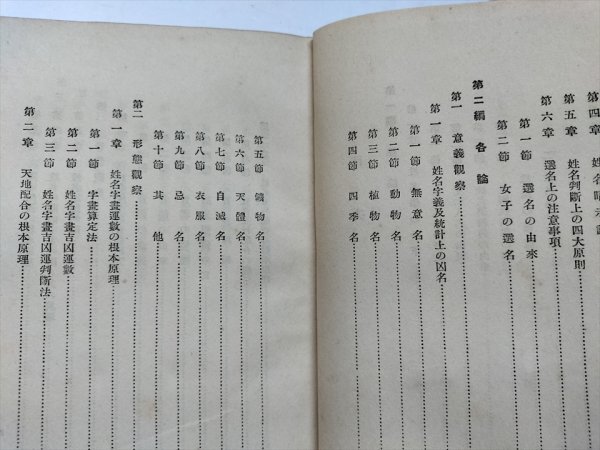 第四章 姓名
第五章 姓名判斷上の四大原則
第六章 選名上の注意事項
第一節 選名の由來
第二節 女子の選名
第二編 各論
第一 意義觀察
第一章 姓名字義及統計上の凶名
第一節 無意名
第二節 動物名
第三節 植物名
第四節 四季名
第五節 鑛物名
第六節 天體名
第七節 自滅名
第八節 衣服名
第九節 忌名
第十節 其他
第二 形態觀察
第一章 姓名字畫運數の根本原理
第一節 字畫算定法
第二節 姓名字畫吉凶運數
第三節 姓名字畫吉凶運判斷法
第二章 天地配合の根本原理